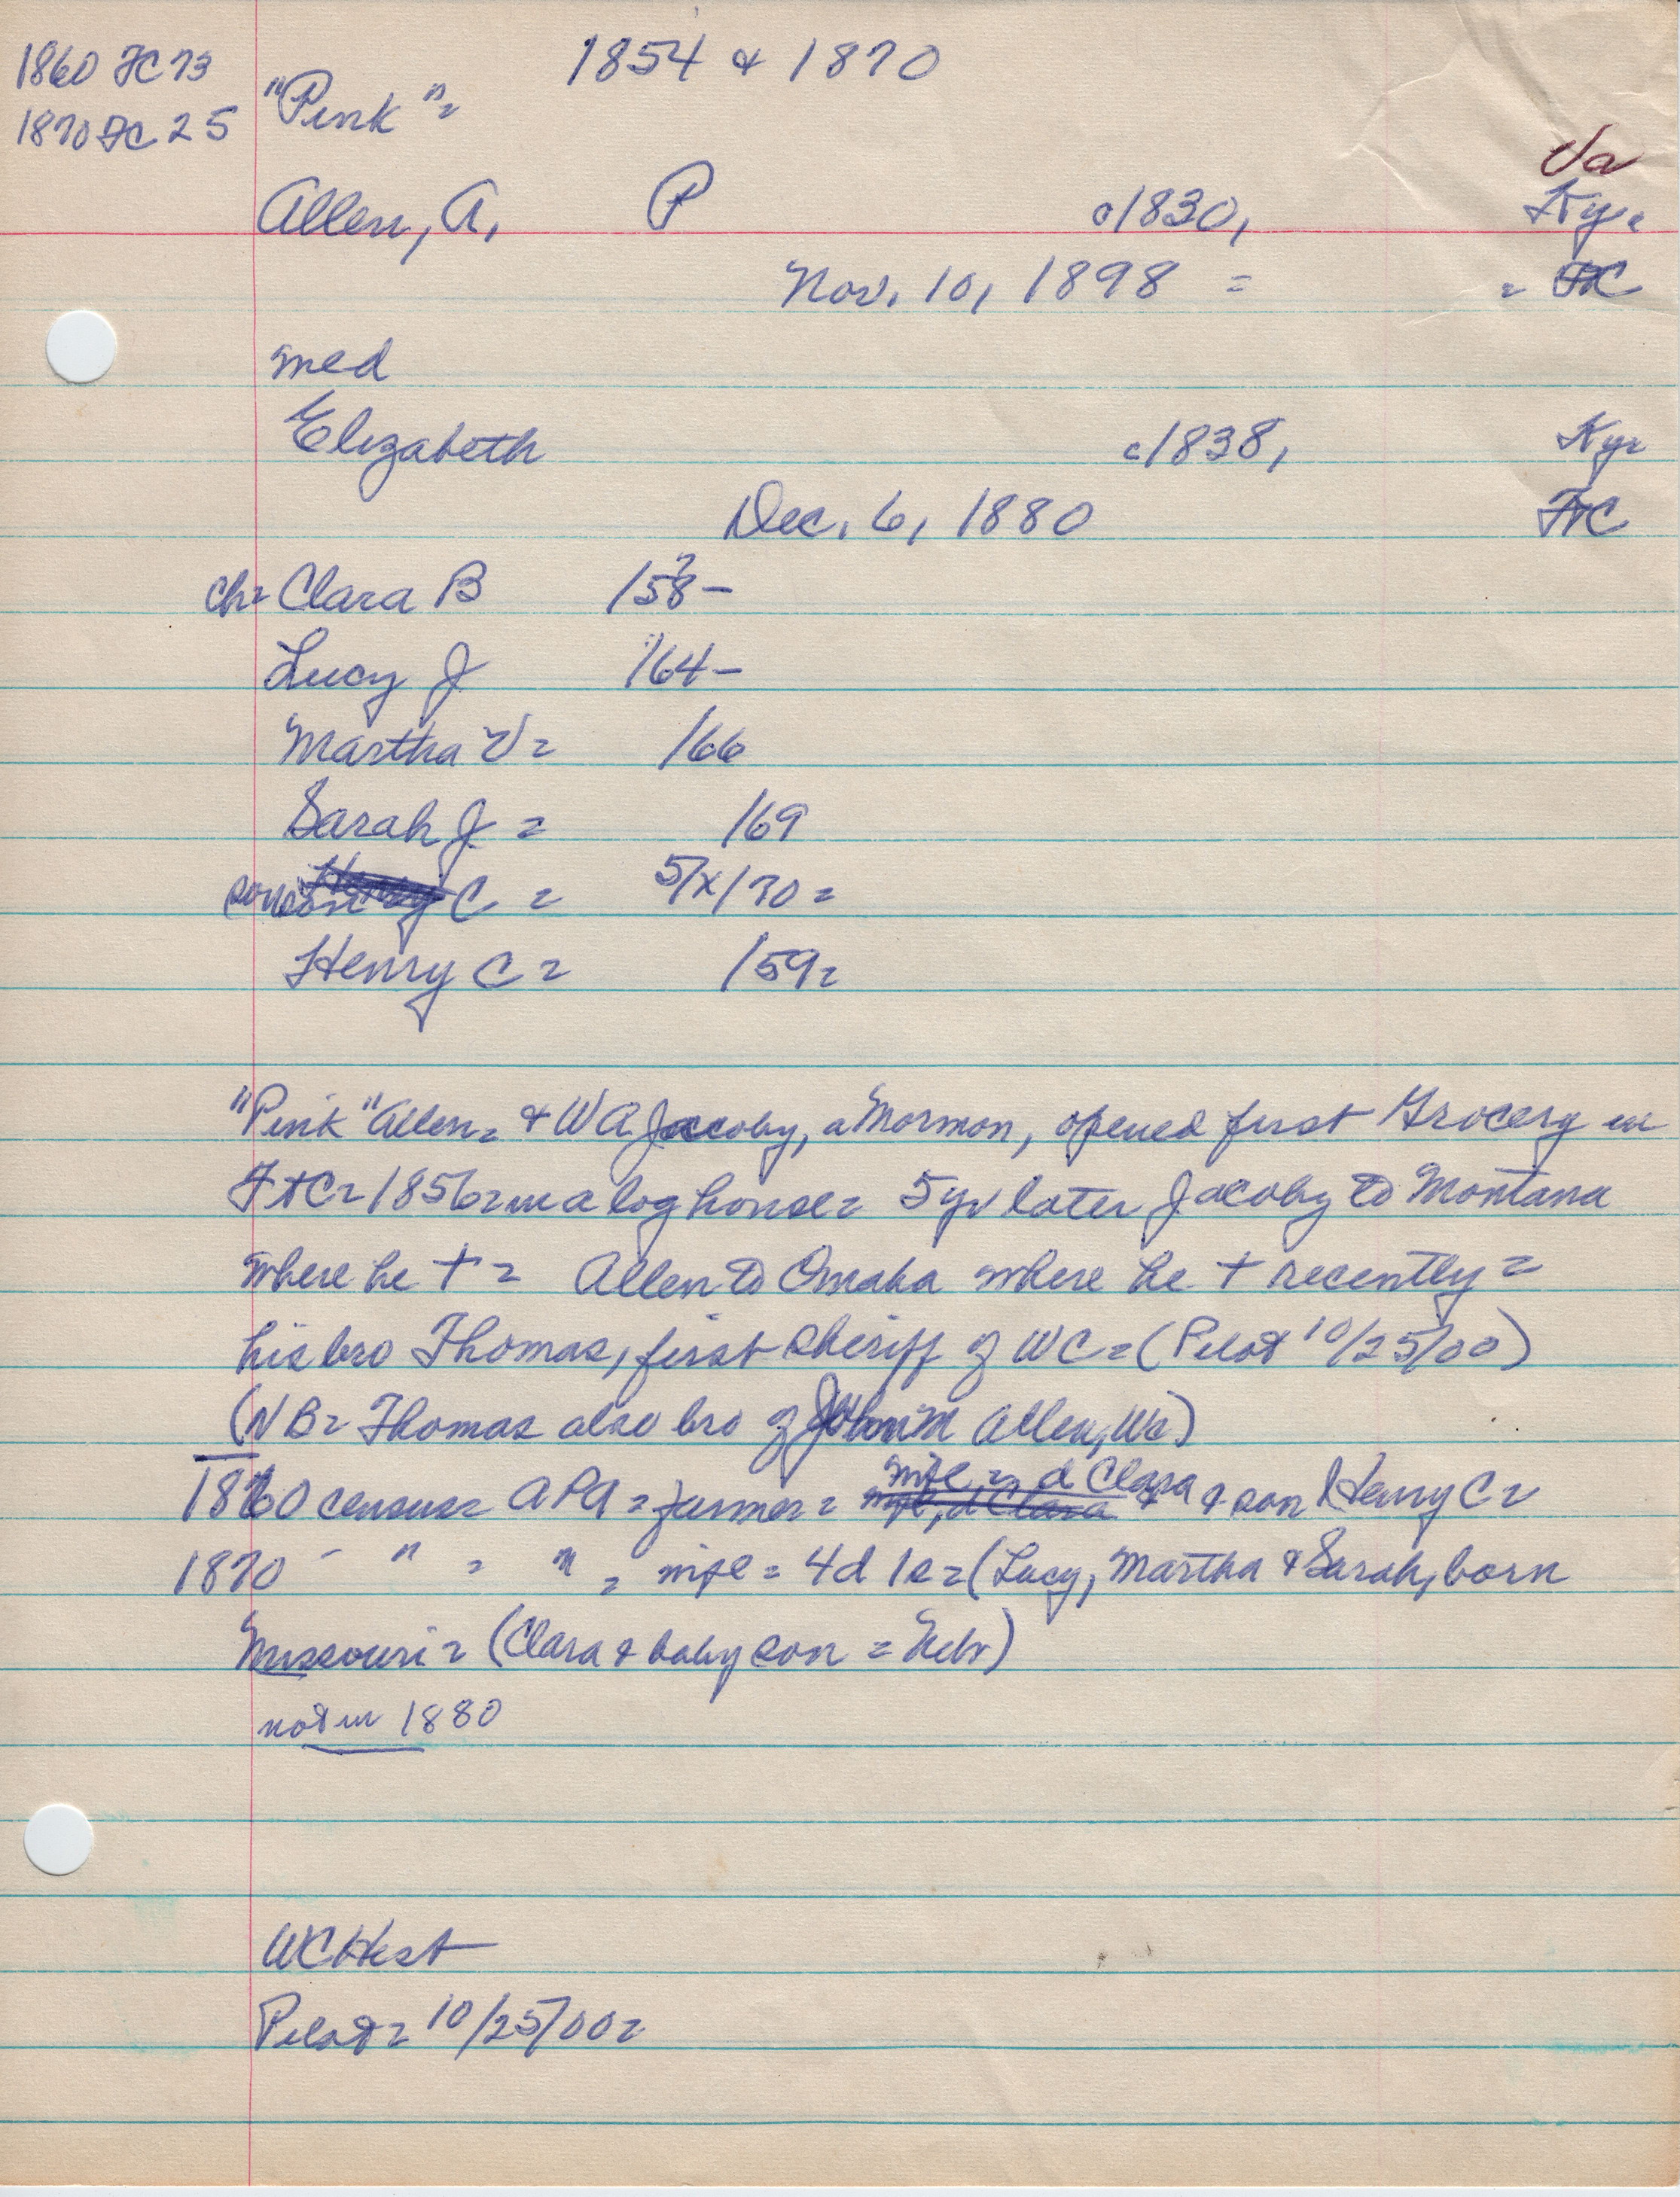 1854 & 1870
1860 FC 73
1870 FC 25
"Pink" =
Va
Allen, A. P c1830, Ky.
Nov. 10, 1898 = = FtC
med
Elizabeth c1838, Ky=
Dec. 6, 1880 FtC
ch= Clara B /58-
?
Lucy J /64-
Martha V= /66
Sarah J = /69
son C = 5/x/70=
Henry C = /59=
"Pink" Allen= & WA Jacoby, a Mormon, opened first Grocery in
FtC= 1856= in a log house= 5 yr later Jacoby to Montana
where he + = Allen to Omaha where he + recently =
his bro Thomas, first sheriff of WC= (Pilot 10/25/00)
(NB= Thomas also bro of John M Allen, Wc)
1860 census= APA = farmer = wife, d Clara & wife = d Clara & son Henry C=
1870 - " = " = wife = 4d 1s = (Lucy, Martha & Sarah, born
Missouri = (Clara & baby son = Nebr)
not in 1880
WC Hist
Pilot= 10/25/00=